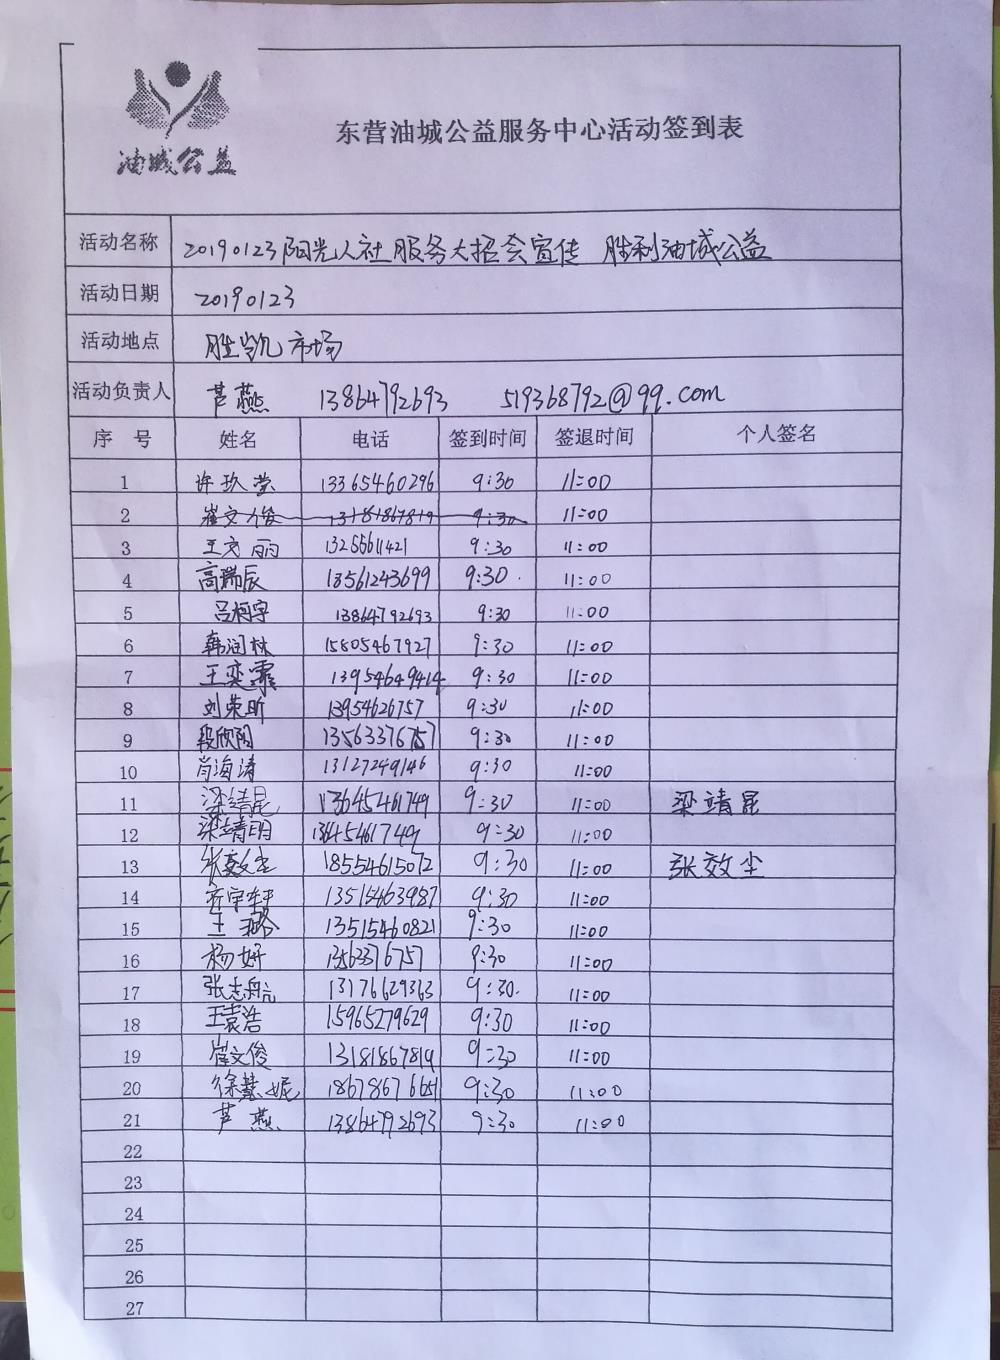 油城公益
东营油城公益服务中心活动签到表
活动名称 20190123阳光人社服务大招会宣传 胜利油城公益
活动日期 20190123
活动地点 胜凯市场
活动负责人 芦燕 13864792693 519368792@qq.com
序号 姓名 电话 签到时间 签退时间 个人签名
1 许玖莹 13365460296 9:30 11:00
2 崔文俊 13181867819 9:30 11:00
3 王文丽 13255611421 9:30 11:00
4 高瑞辰 13561243699 9:30. 11:00
5 吕柯宇 13864792693 9:30 11:00
6 韩润林 15805467927 9:30 11:00
7 王奕霏 13954649414 9:30 11:00
8 刘荣昕 13954626757 9:30 11:00
9 段欣阳 13563376757 9:30 11:00
10 肖海涛 13127249146 9:30 11:00
11 梁靖昆 13645461749 9:30 11:00 梁靖昆
12 梁靖明 13645461749 9:30 11:00
13 张效尘 18554615072 9:30 11:00 张效尘
14 乔宇轩 13515463987 9:30 11:00
15 王璐 13515460821 9:30 11:00
16 杨妍 1356376757 9:30 11:00
17 张志航 13176629363 9:30. 11:00
18 王袁浩 15965279629 9:30 11:00
19 崔文俊 13181867819 9:30 11:00
20 徐慧妮 18678676651 9:30 11:00
21 芦燕 13864792693 9:30 11:00
22
23
24
25
26
27